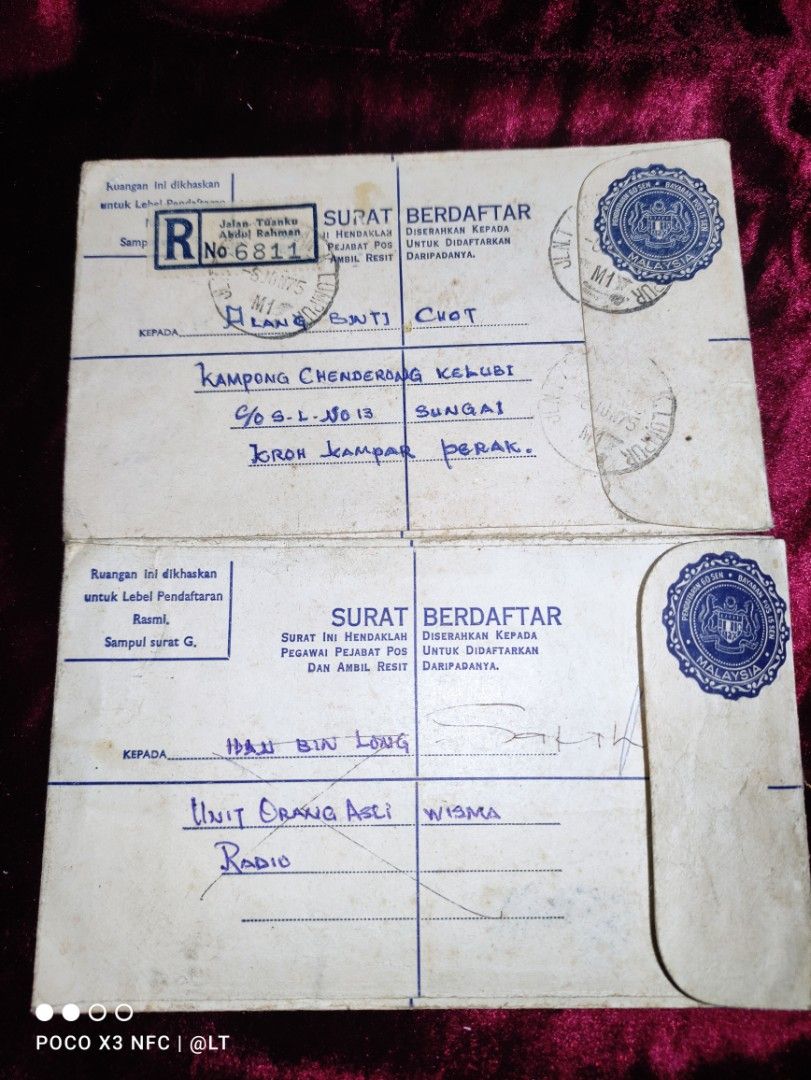 Ruangan Ini dikhaskan
untuk Lebel Pendaftaran
Samp
R
Jalan Tuanku
Abdul Rahman
No 6811
SURAT BERDAFTAR
JI HENDAKLAH DISERAHKAN KEPADA
PEJABAT POS UNTUK DIDAFTARKAN
AMBIL RESIT DARIPADANYA.
60 SEN • BAYARAN POS 15 SEN
MALAYSIA
M1
LUMPUR
KEPADA ALANG BINTI CHOT
KAMPONG CHENDERONG KELUBI
C/O S.L. NO 13 SUNGAI
KROH KAMPAR PERAK.
Ruangan Ini dikhaskan
untuk Lebel Pendaftaran
Rasmi.
Sampul surat G.
SURAT BERDAFTAR
SURAT INI HENDAKLAH DISERAHKAN KEPADA
PEGAWAI PEJABAT POS UNTUK DIDAFTARKAN
DAN AMBIL RESIT DARIPADANYA.
PENDAFTARAN 60 SEN • BAYARAN POS 15 SEN
MALAYSIA
KEPADA BIN LONG
UNIT ORANG ASLI WISMA
RADIO
POCO X3 NFC | @LT